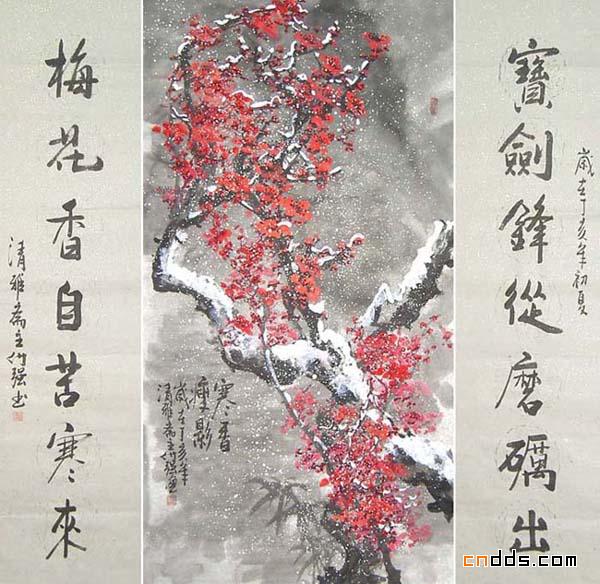 寶劍鋒從磨礪出
歲在丁亥年初夏
寒香
瘦影
歲在丁亥年
清雅齋主付强画
梅花香自苦寒來
清雅齋主付强书
cndds.com